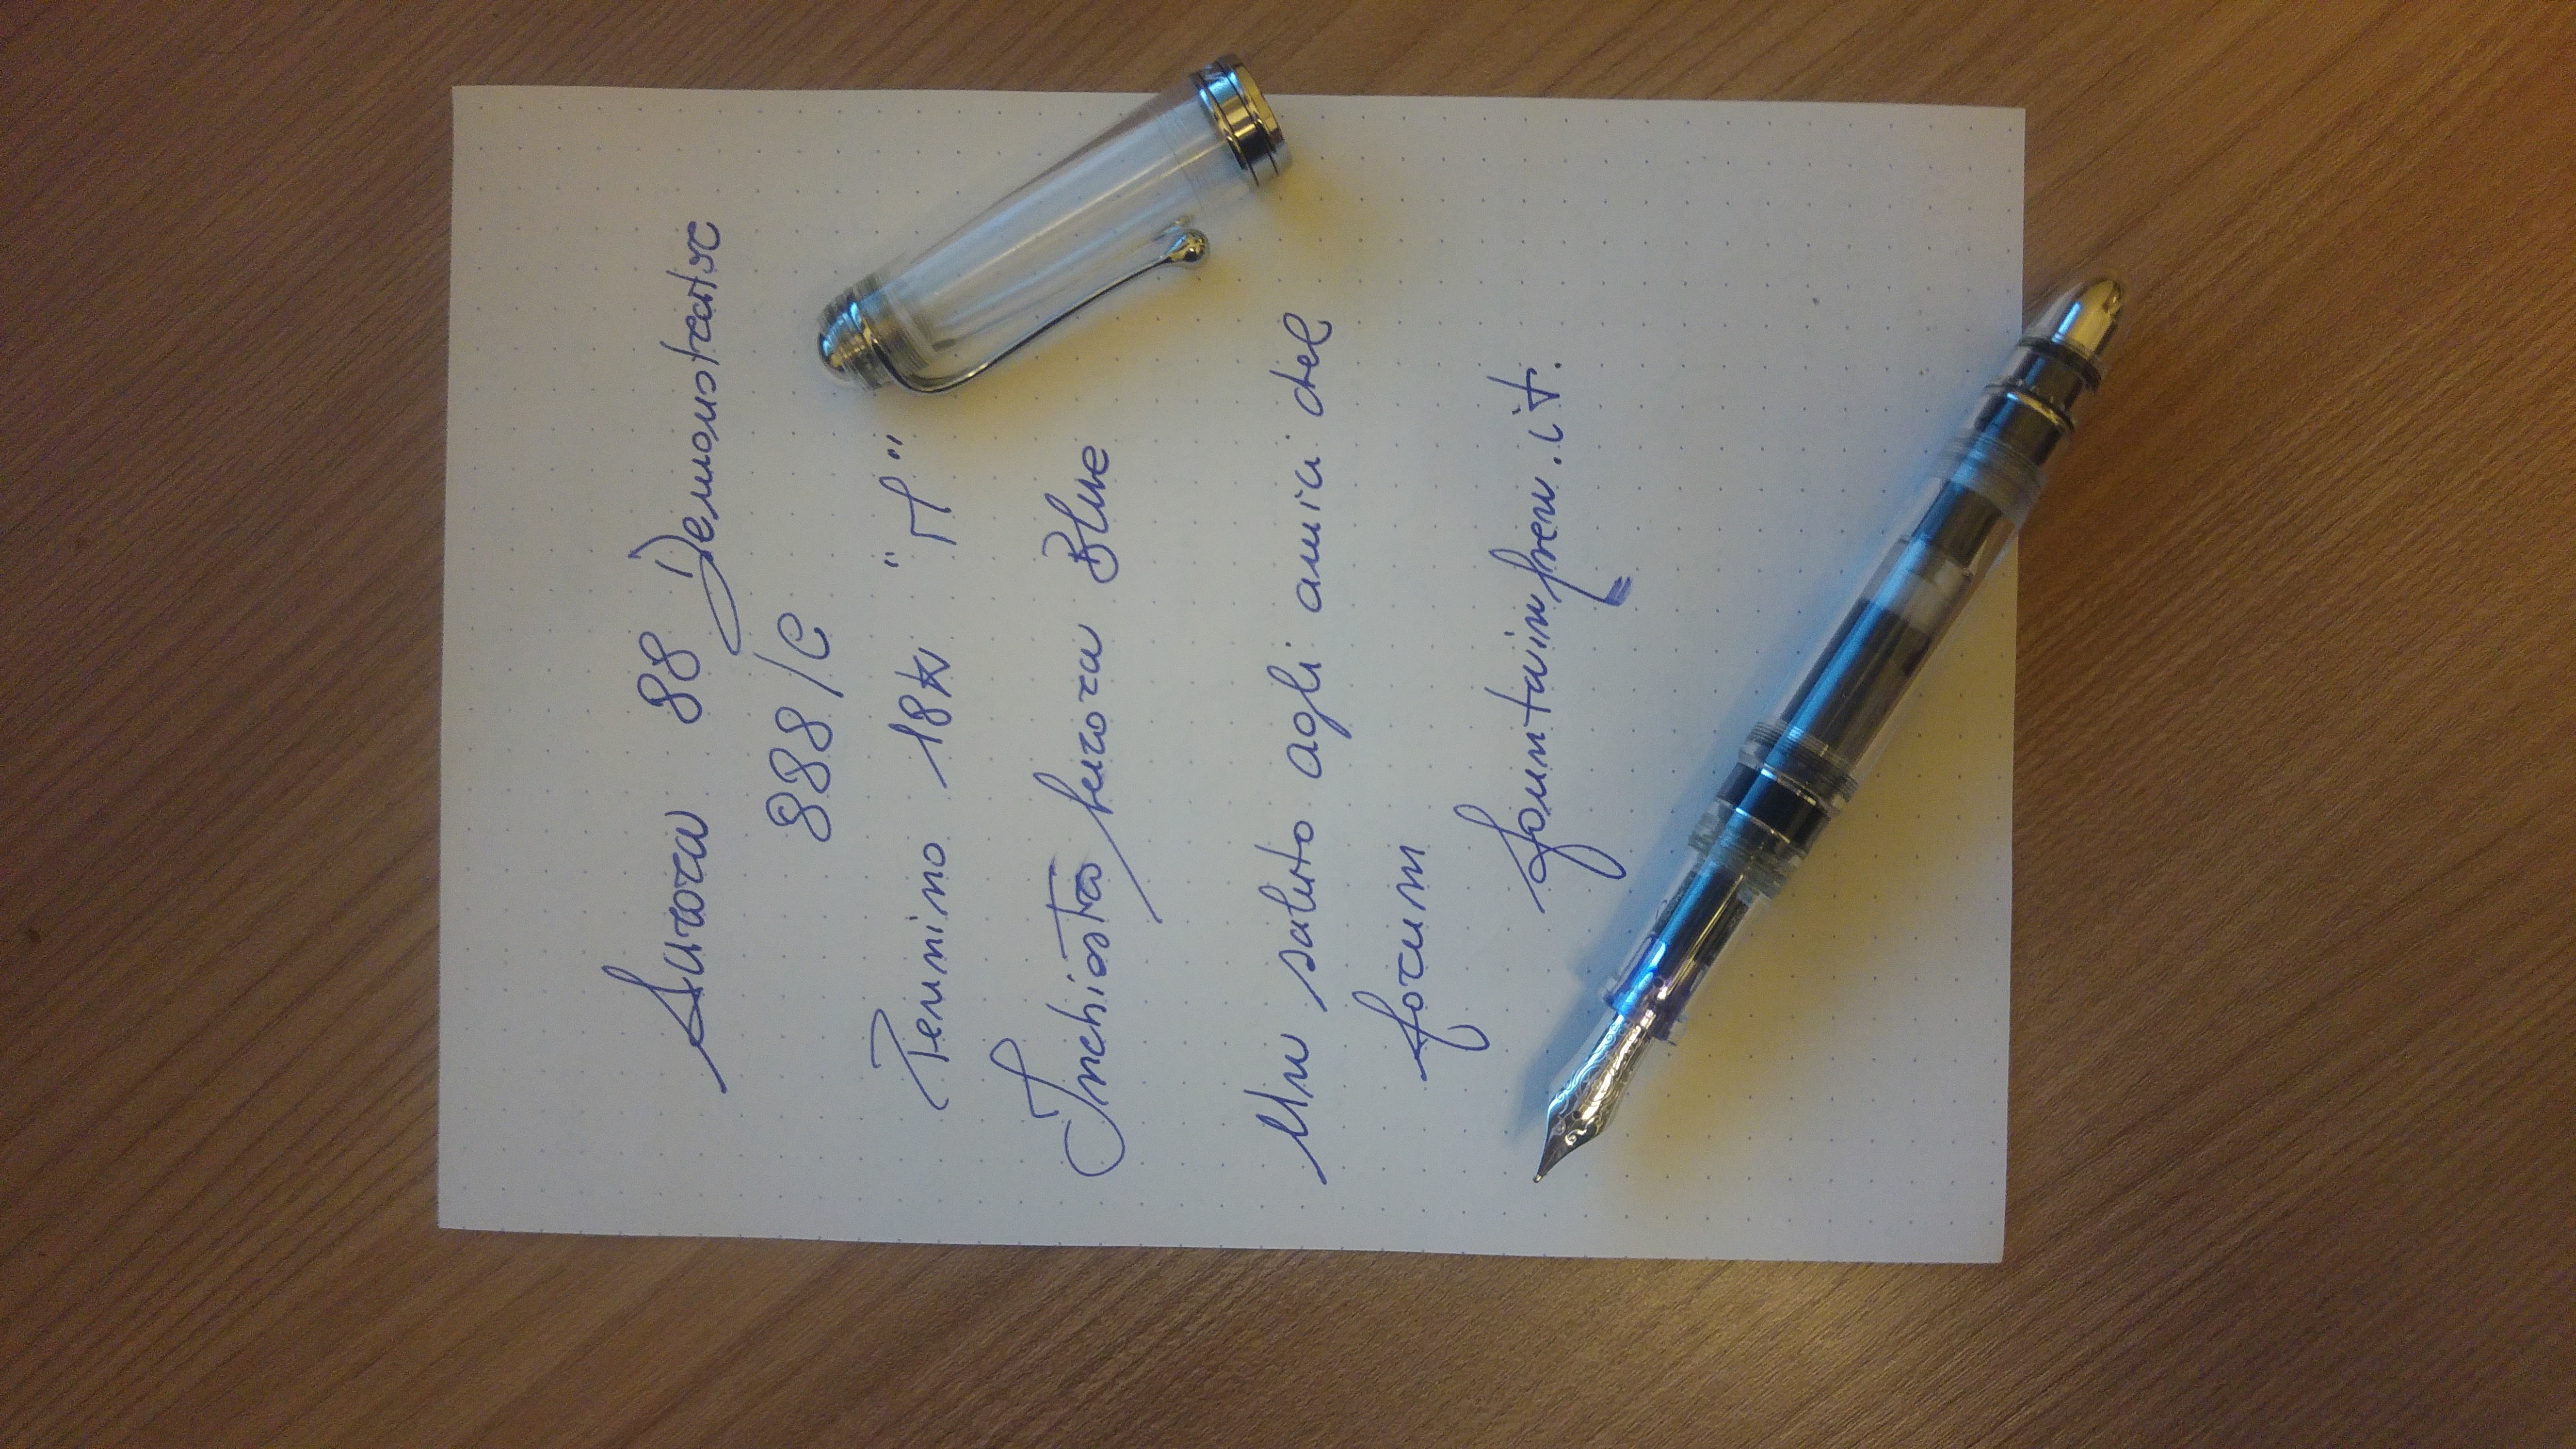 Aurora 88 Demonstrator
888/C
Pennino 18k "M"
Inchiostro Aurora Blue
Un saluto agli amici del
forum
fountainpen.it.